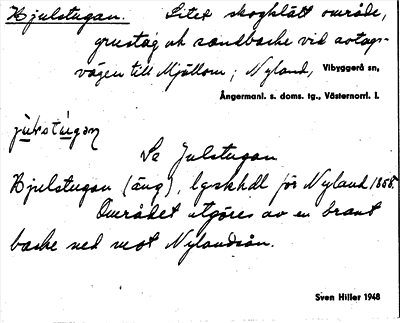 Hjulstugan. Litet skogklätt område,
grustag och sandbacke vid avtags-
vägen till Mjällom; Nyland, Vibyggerå sn,
Ångermanl. s. doms. tg., Västernorrl. l.
julstùgan
Se Julstugan
Hjulstugan (äng), lgskhdl för Nyland 1858.
Området utgöres av en brant
backe ned mot Nylandsån.
Sven Hiller 1948